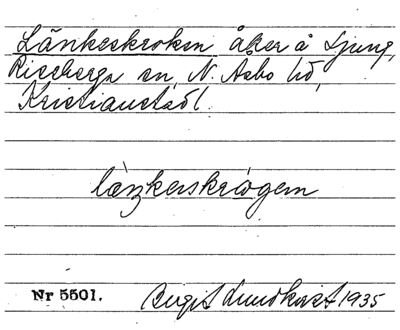 Länkeskroken åker å Ljung,
Riseberga sn, N. Åsbo hd,
Kristianstads l.
läŋkerskrȧ̀gem
Nr 5501. Birgit Lundkvist 1935